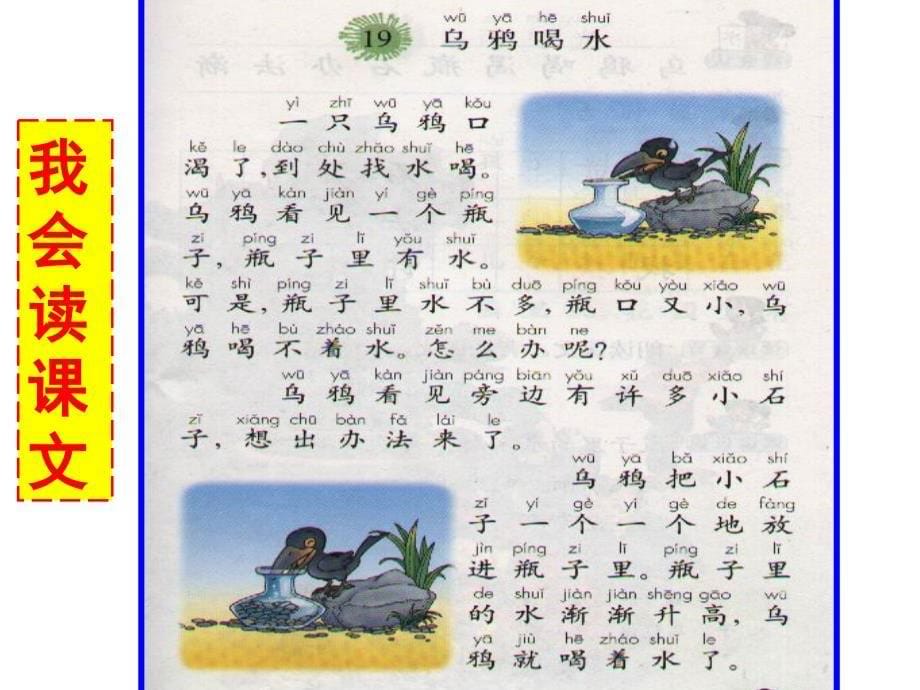 我会读课文
wū yā hē shuǐ
19 乌鸦喝水
yì zhī wū yā kǒu
一只乌鸦口
kě le dào chù zhǎo shuǐ hē
渴了,到处找水喝。
wū yā kàn jiàn yí gè píng
乌鸦看见一个瓶
zi píng zi lǐ yǒu shuǐ
子,瓶子里有水。
kě shì píng zi lǐ shuǐ bù duō píng kǒu yòu xiǎo wū
可是,瓶子里水不多,瓶口又小,乌
yā hē bù zháo shuǐ zěn me bàn ne
鸦喝不着水。怎么办呢?
wū yā kàn jiàn páng biān yǒu xǔ duō xiǎo shí
乌鸦看见旁边有许多小石
zǐ xiǎng chū bàn fǎ lái le
子,想出办法来了。
wū yā bǎ xiǎo shí
乌鸦把小石
zǐ yí gè yí gè de fàng
子一个一个地放
jìn píng zi lǐ píng zi lǐ
进瓶子里。瓶子里
de shuǐ jiàn jiàn shēng gāo wū
的水渐渐升高,乌
yā jiù hē zháo shuǐ le
鸦就喝着水了。